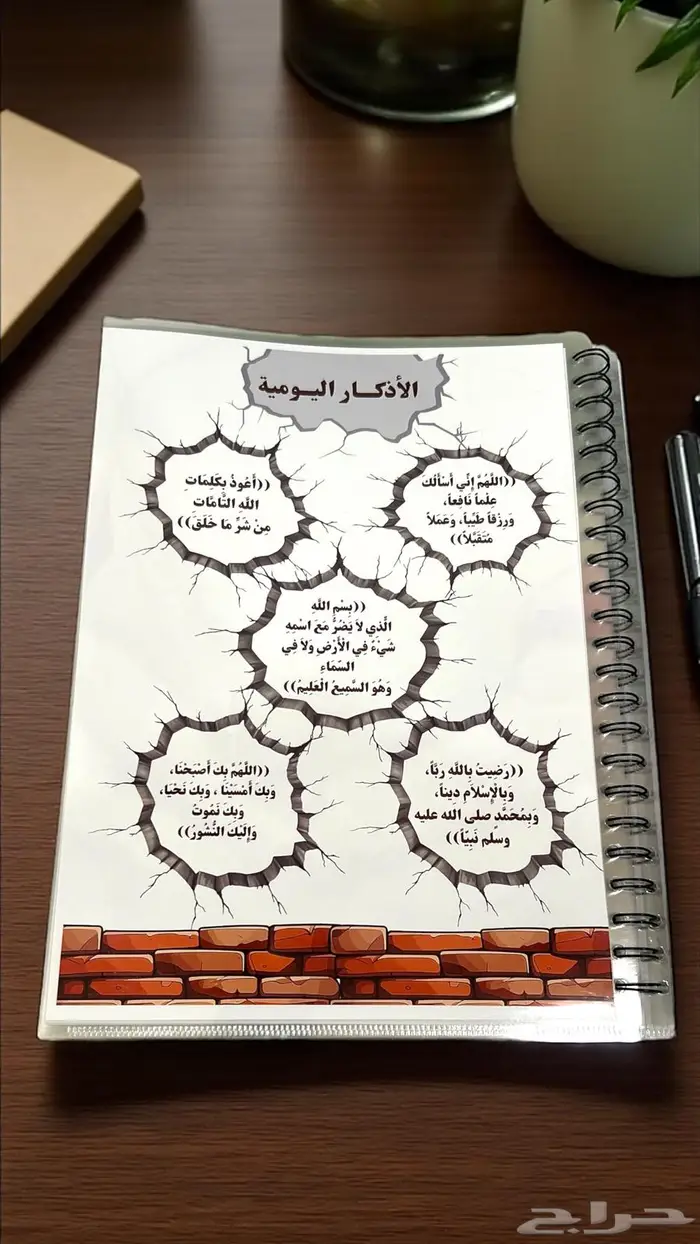 الأذكار اليومية
((اللَّهُمَّ إِنِّي أَسْأَلُكَ
عِلْماً نَافِعاً،
وَرِزْقاً طَيِّباً، وَعَمَلاً
مُتَقَبَّلاً))
((أَعُوذُ بِكَلِمَاتِ
اللَّهِ التَّامَّات
مِنْ شَرِّ مَا خَلَقَ))
((بِسْمِ اللَّهِ
الَّذِي لاَ يَضُرُّ مَعَ اسْمِهِ
شَيْءٌ فِي الْأَرْضِ وَلاَ فِي
السَّمَاءِ
وَهُوَ السَّمِيعُ الْعَلِيمُ))
((رَضِيتُ بِاللَّهِ رَبَّاً،
وَبِالْإِسْلاَمِ دِيناً،
وَبِمُحَمَّدٍ صلى الله عليه
وسلم نَبِيّاً))
((اللَّهُمَّ بِكَ أَصْبَحْنَا،
وَبِكَ أَمْسَيْنَا ، وَبِكَ نَحْيَا،
وَبِكَ نَمُوتُ
وَإِلَيْكَ النُّشُورُ))
حراج